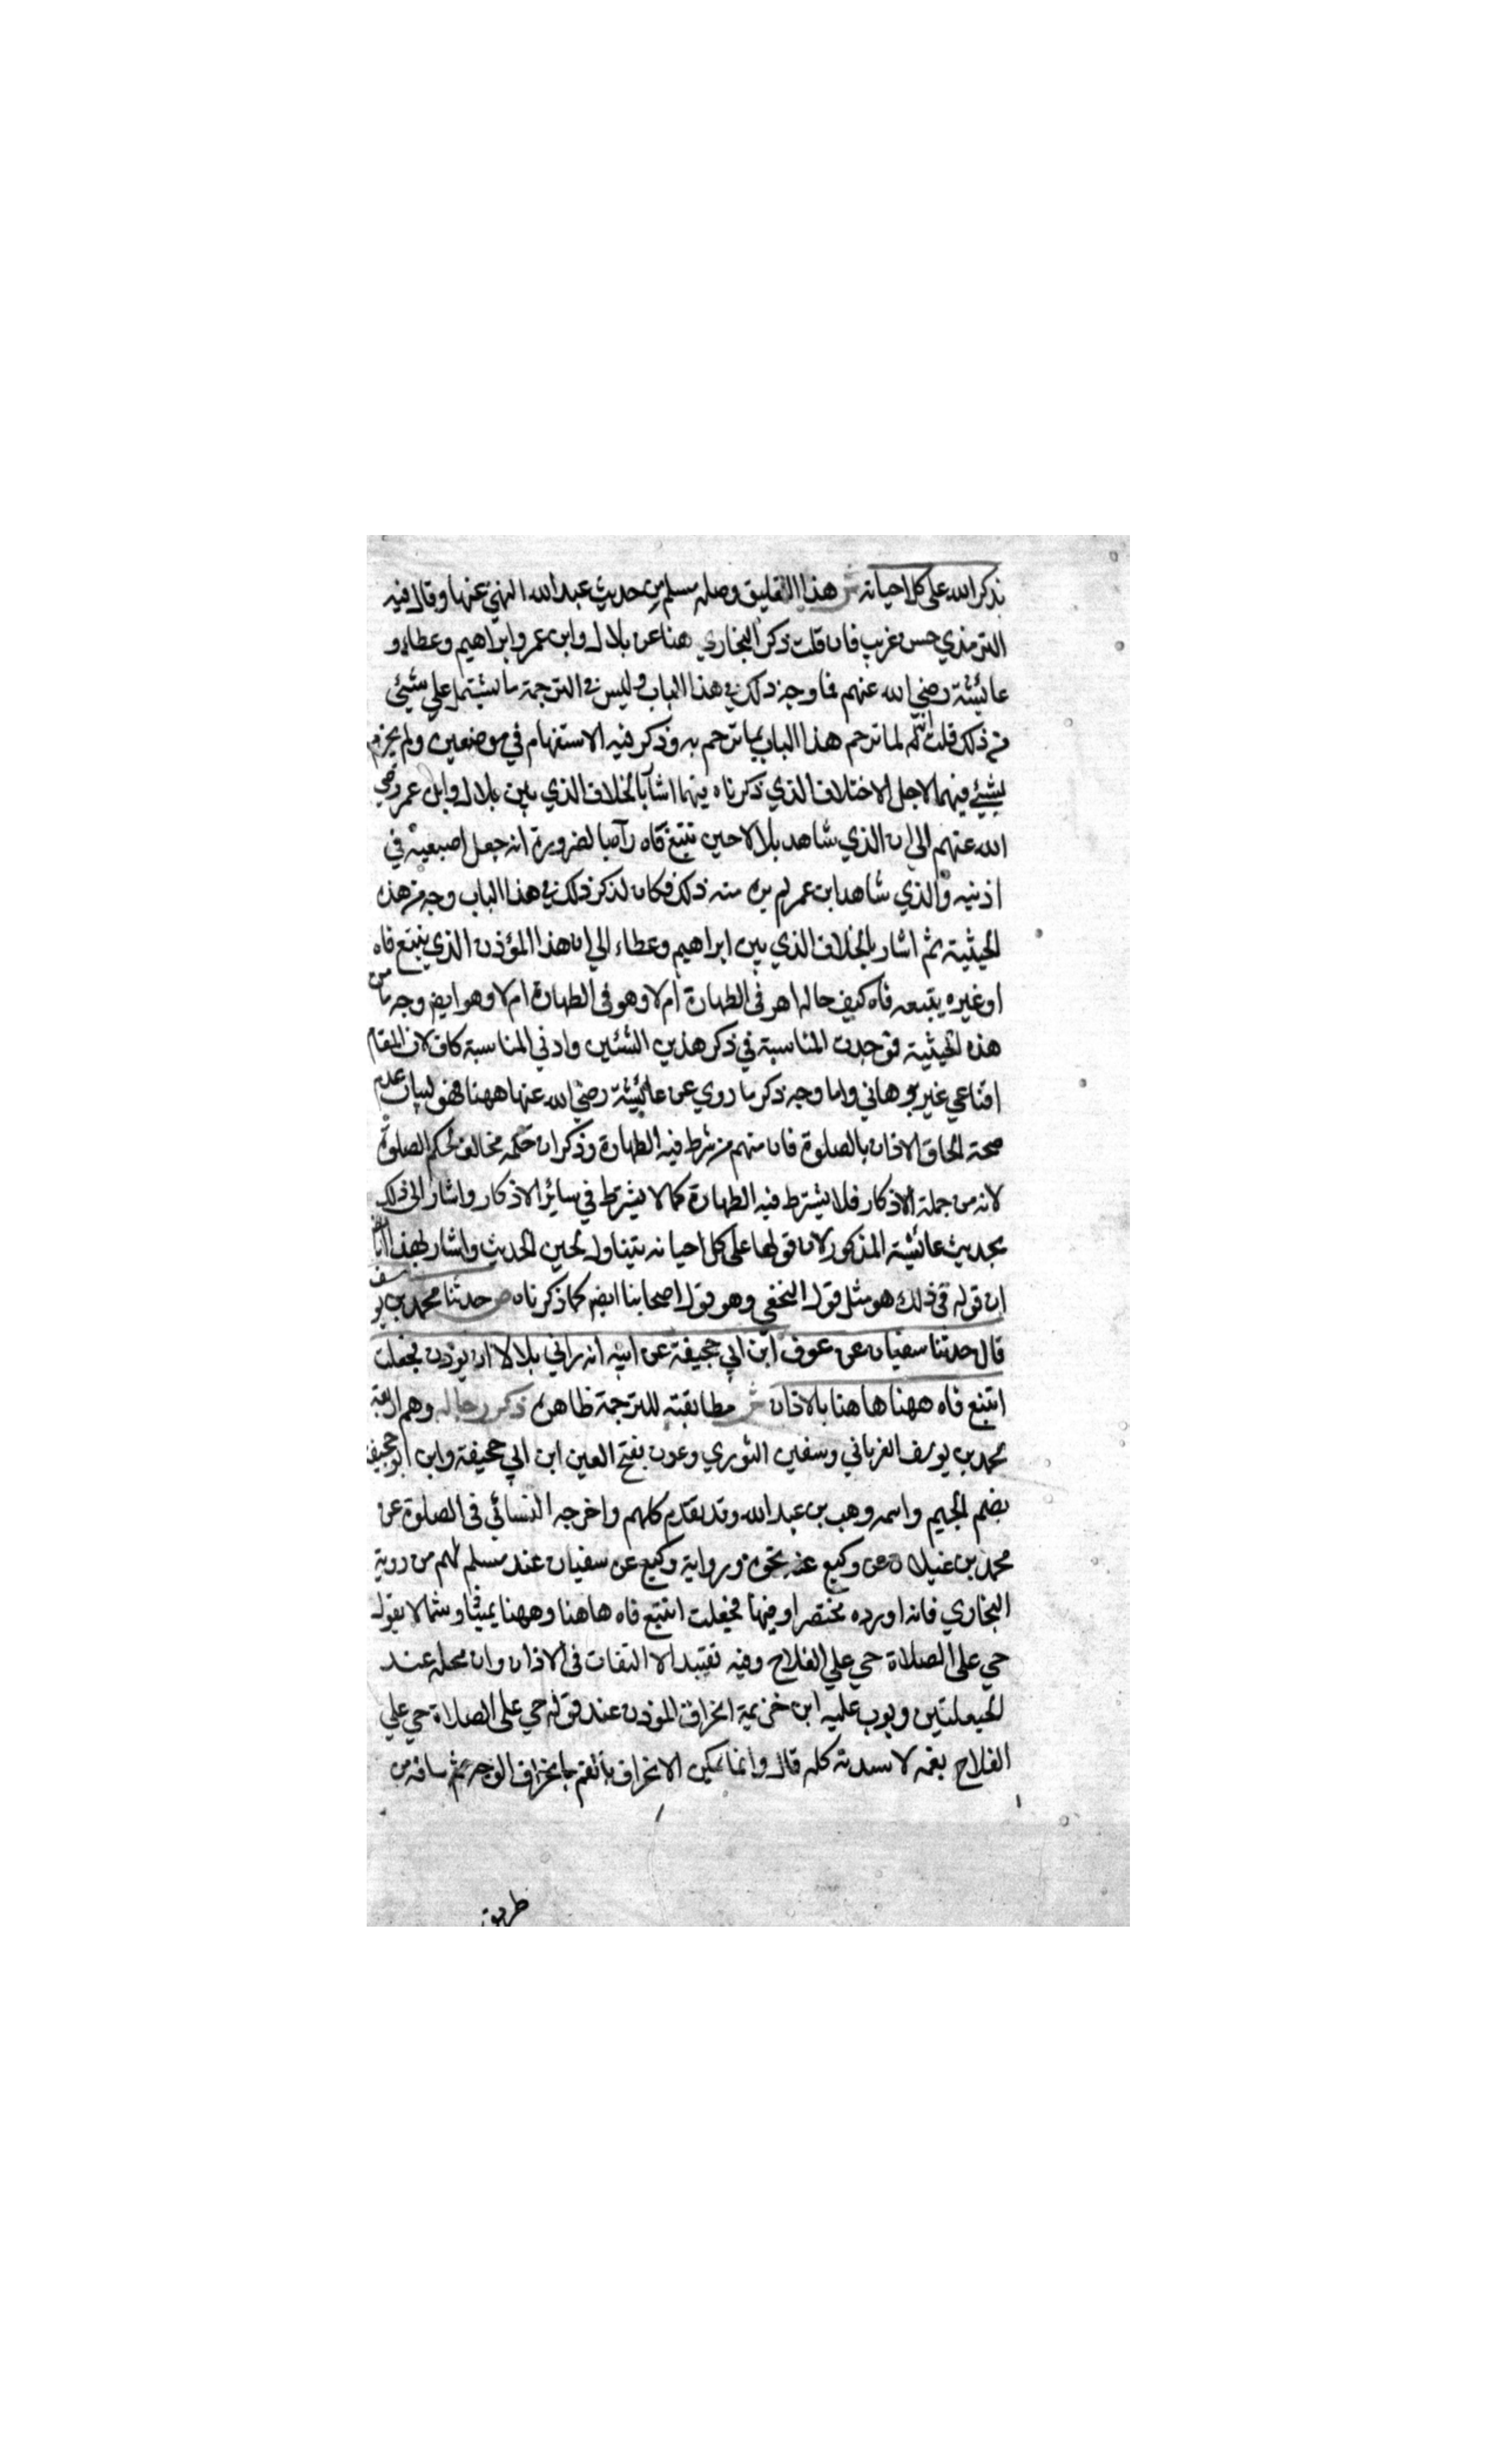 يذكر الله على كل احيانه ش هذا التعليق وصله مسلم من حديث عبد الله النهي عنها وقال فيه
الترمذي حسن غريب فان قلت ذكر البخاري هنا عن بلال وابن عمر وابراهيم وعطاء و
عائشة رضي الله عنهم فما وجه ذلك في هذا الباب وليس في الترجمة ما يشتمل علي شيئ
من ذلك قلت انه لما ترجم هذا الباب بما ترجم به وذكر فيه الاستفهام في موضعين ولم يجزم
بشيئ فيهما لاجل الاختلاف الذي ذكرناه فيهما اشار بالخلاف الذي بين بلال وابن عمر رضي
الله عنهم الى ان الذي شاهد بلالا حين تتبع فاه رآه بالضرورة انه جعل اصبعيه في
اذنيه والذي شاهد ابن عمر لم ير منه ذلك فكان لذكر ذلك في هذا الباب وجه من هذه
الحيثية ثم اشار بالخلاف الذي بين ابراهيم وعطاء الي ان هذا المؤذن الذي يتتبع فاه
او غيره يتبعه فاه كيف حاله اهو في الطهارة ام لا وهو في الطهارة ام لا وهو ايضم وجه ما من
هذه الحيثية فوجدت المناسبة في ذكر هذين الشئين وادني المناسبة كاف لان المقام
اقناعي غير برهاني واما وجه ذكر ما روي عن عائشة رضي الله عنها ههنا فهو لبيان عدم
صحة الحاق الاذان بالصلوة فان منهم من شرط فيه الطهارة وذكر ان حكمه مخالف لحكم الصلوة
لانه من جملة الاذكار فلا يشترط فيه الطهارة كما لا يشترط في سائر الاذكار واشار الى ذلك
بحديث عائشة المذكور لان قولها على كل احيانه يتناول لحين الحدث واشار بهذا ايضا
ان قوله في ذلك هو مثل قول النخعي وهو قول اصحابنا ايضم كما ذكرناه ص حدثنا محمد بن يوسف
قال حدثنا سفيان عن عوف ابن ابي جحيفة عن ابيه انه راني بلالا ان يوذن فجعلت
اتتبع فاه ههنا هاهنا بالاذان ش مطابقته للترجمة ظاهرة ذكر رجاله وهم اربعة
محمد بن يوسف الفريابي وسفين الثوري وعون بفتح العين ابن ابي جحيفة وابن ابو جحيفة
بضم الجيم واسمه وهب بن عبد الله وقد تقدم كلهم واخرجه النسائي في الصلوة عن
محمد بن غيلان عن وكيع عنه نحوه ورواية وكيع عن سفيان عند مسلم لهم من روية
البخاري فانه اورده مختصرا وفيها فجعلت اتتبع فاه هاهنا وههنا يمينا وشمالا يقول
حي على الصلاة حي علي الفلاح وفيه تقييد الالتفات في الاذان وان محله عند
الحيعلتين وبوب عليه ابن خزيمة انحراف الموذن عند قوله حي على الصلاة حي علي
الفلاح بفمه لا ببدنه كله قال وانما يمكن الانحراف بالفم بانحراف الوجه ثم ساقه من
طريق